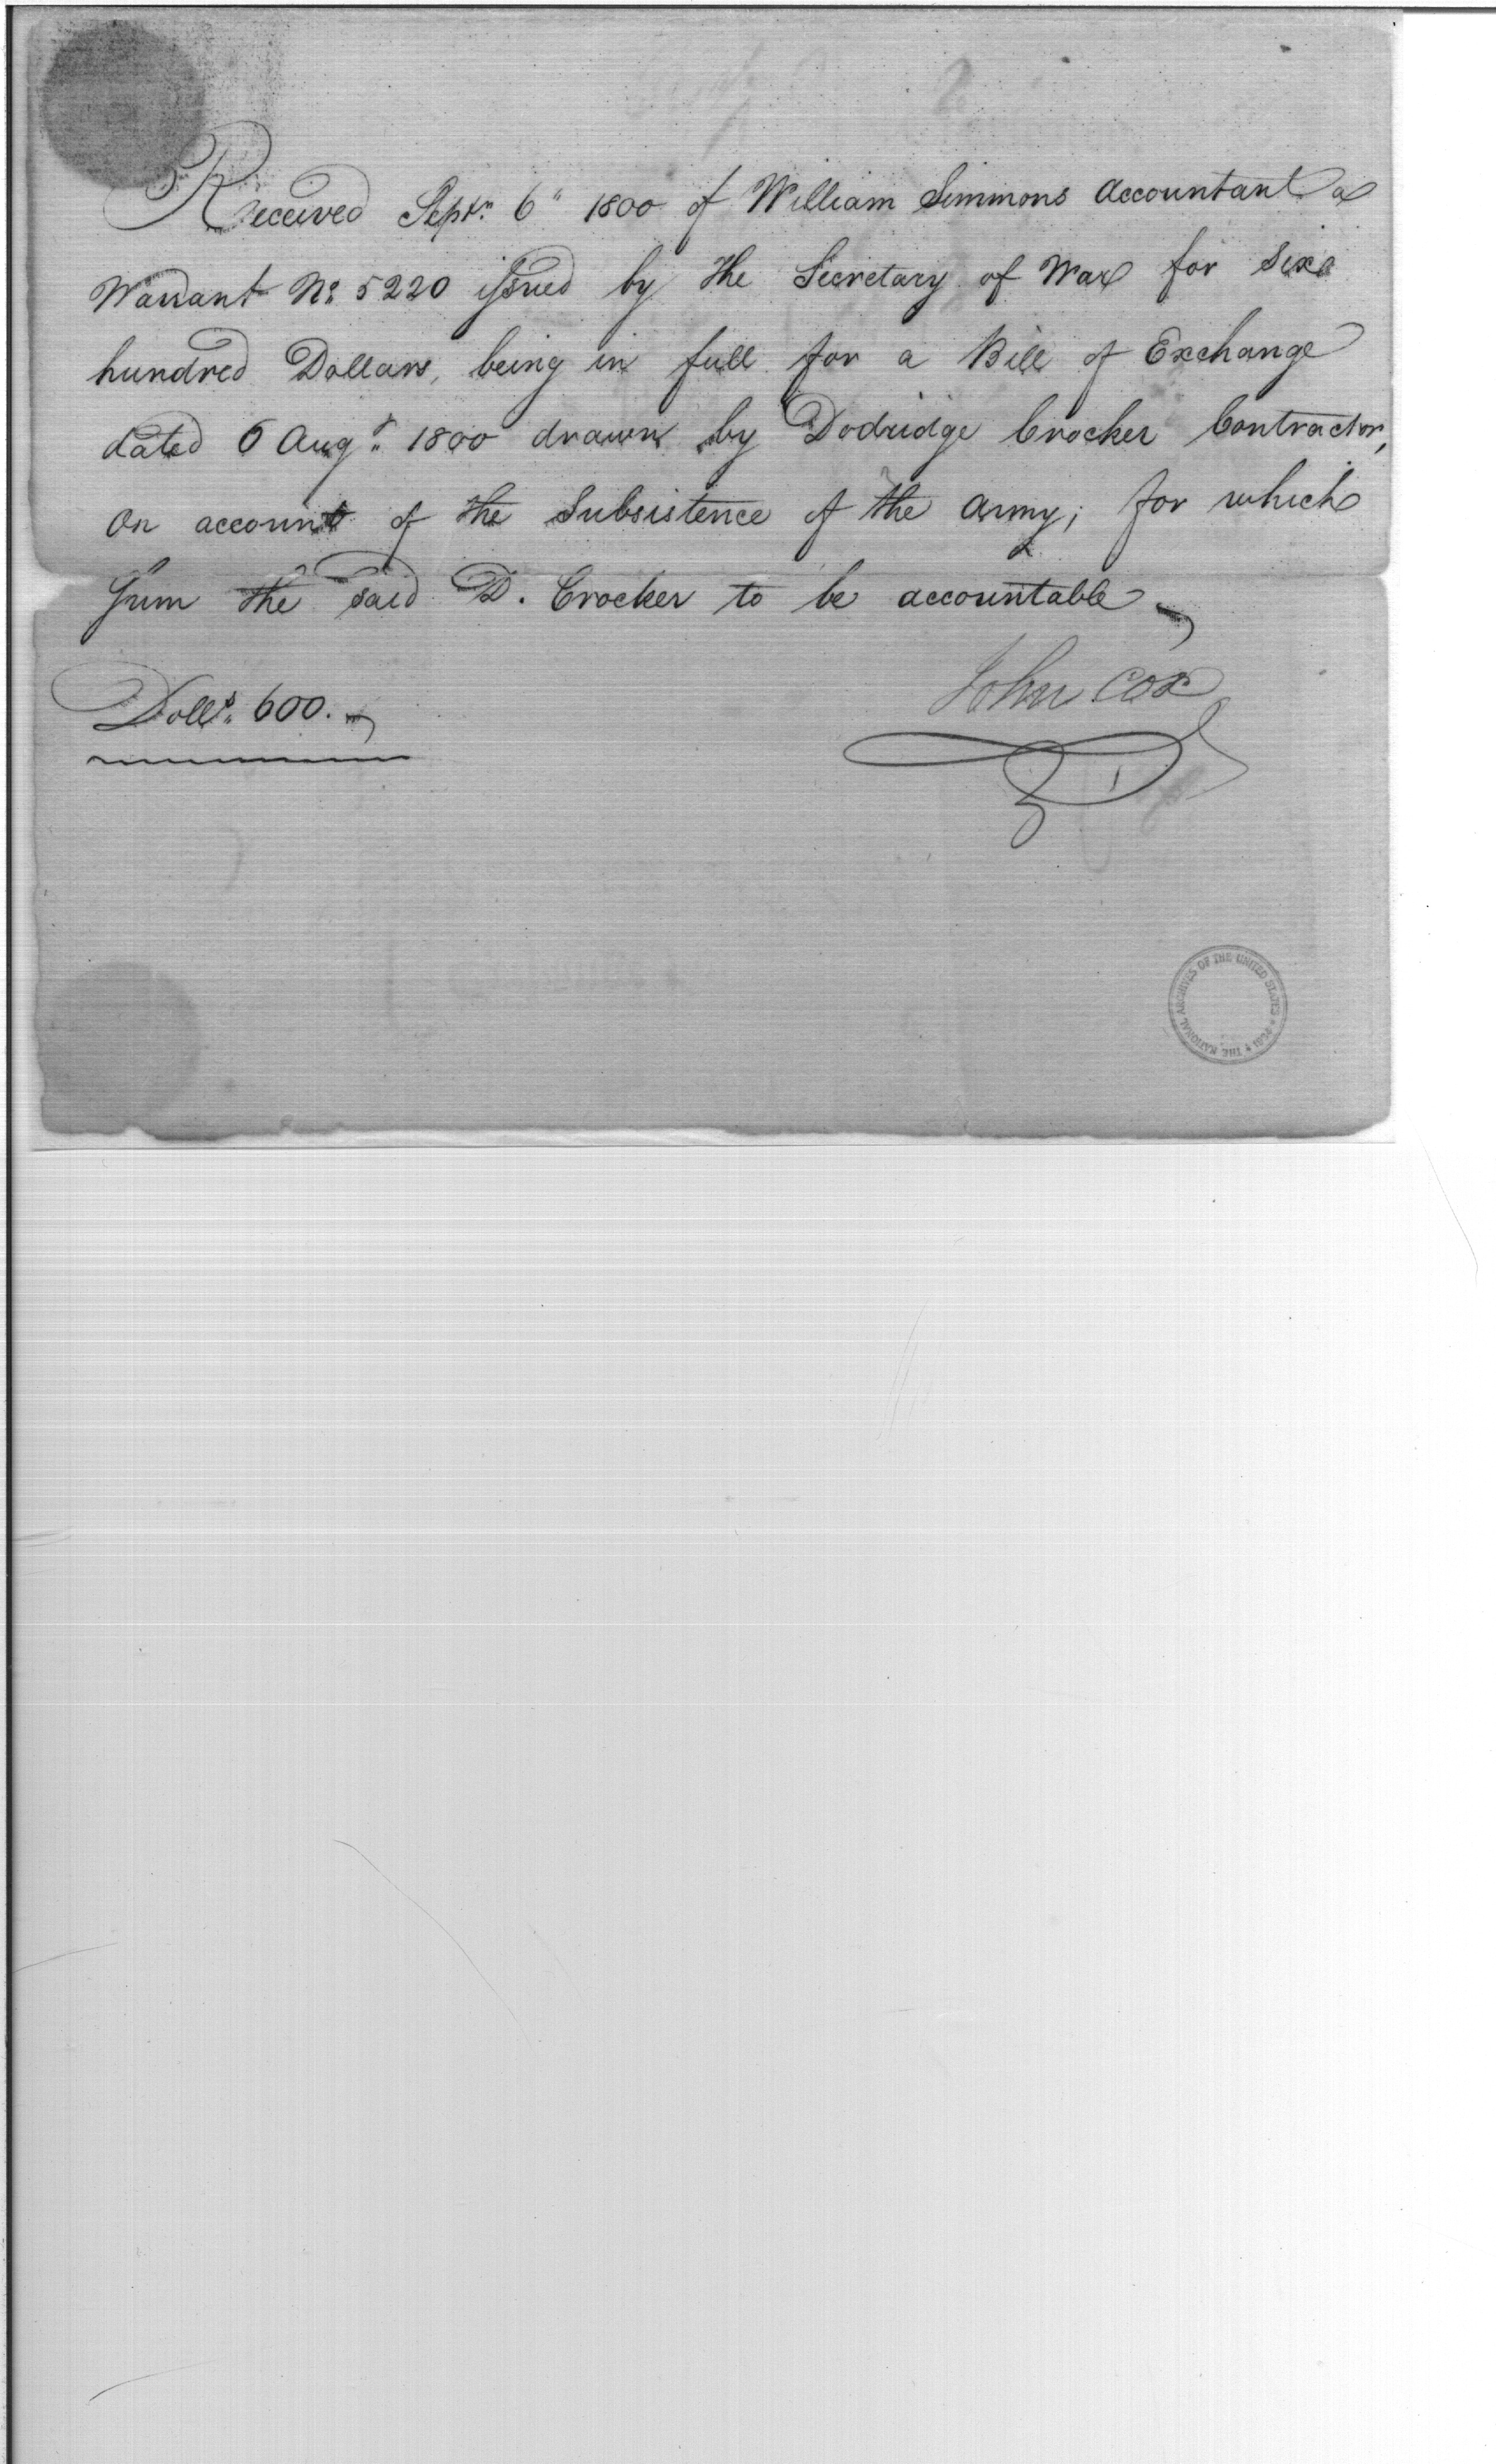 Received Septr. 6" 1800 of William Simmons Accountant a
Warrant No. 5220 issued by the Secretary of War for six
hundred Dollars, being in full for a Bill of Exchange
dated 6 Augt. 1800 drawn by Dodridge Crocker Contractor,
on account of the Subsistence of the Army; for which
Sum the said D. Crocker to be accountable
Dolls. 600.
John Cox
THE NATIONAL ARCHIVES OF THE UNITED STATES * 1934 *